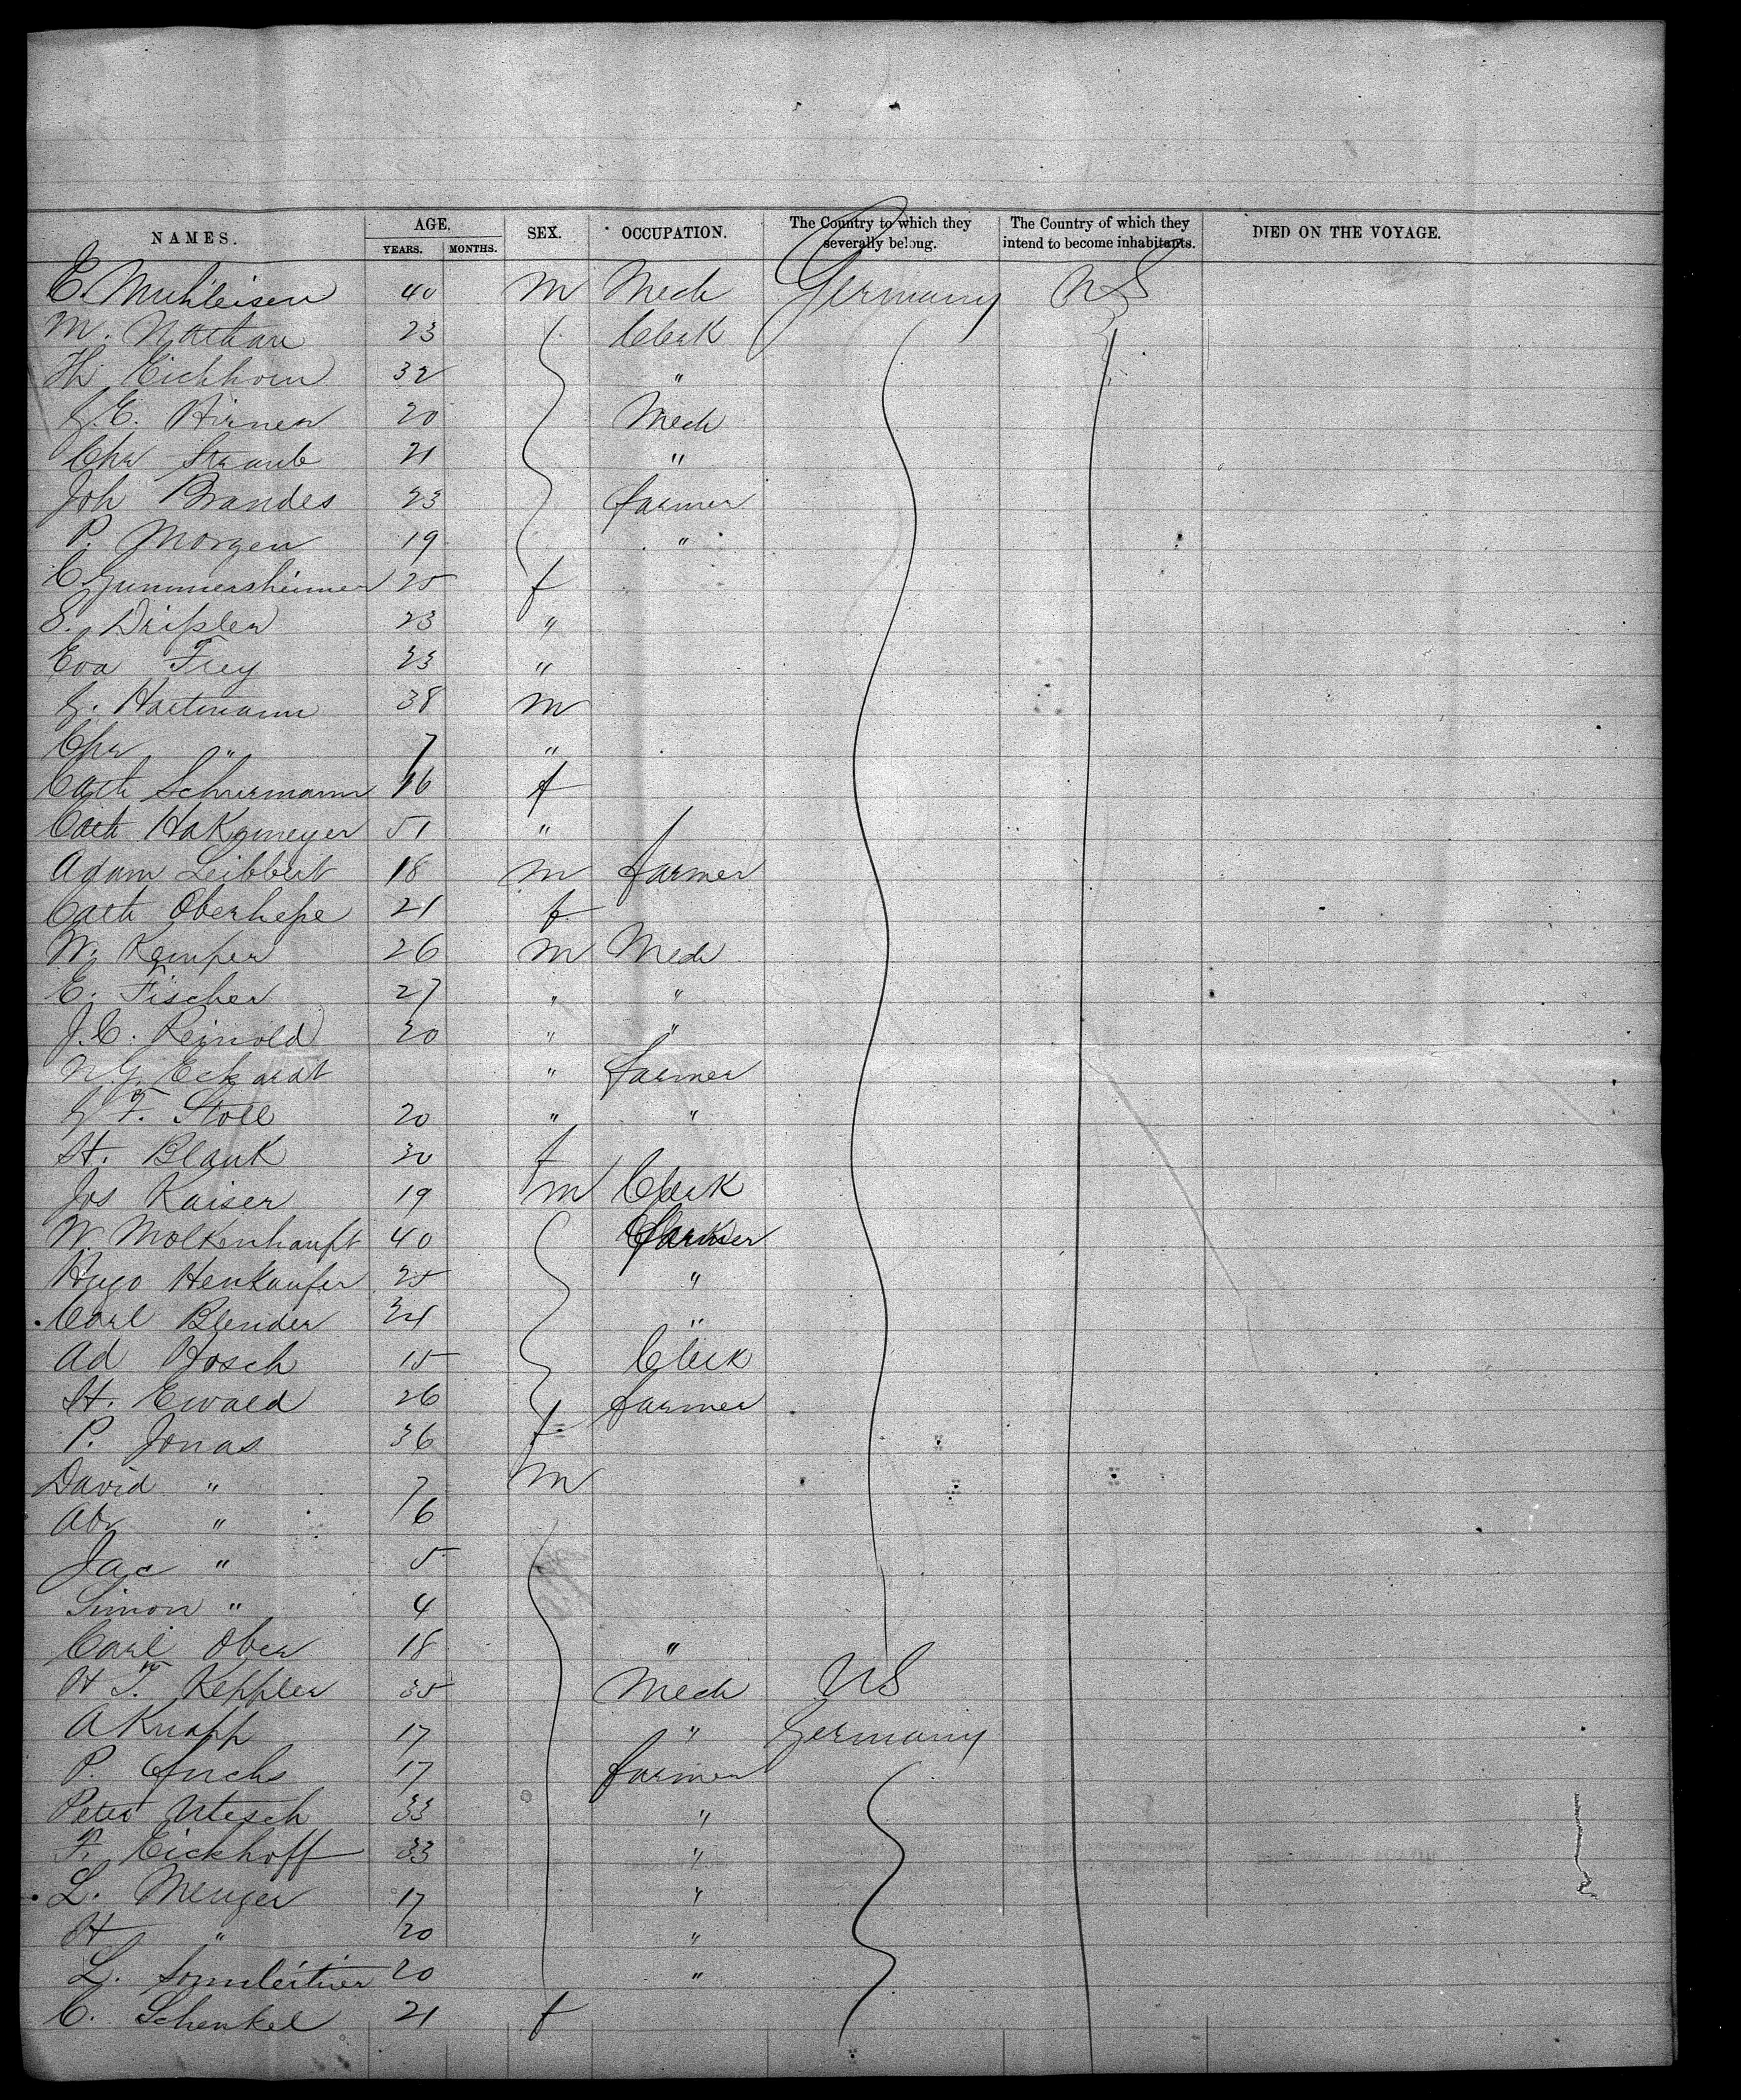 NAMES. AGE. SEX. OCCUPATION. The Country to which they severally belong. The Country of which they intend to become inhabitants. DIED ON THE VOYAGE.
YEARS. MONTHS.
E. Muhleisen 40 m Mech Germany US
M. Nathan 23 Clerk
Th Eichhorn 32 "
G. E. Hirner 20 Mech
Chr Straub 21 "
Joh Brandes 23 farmer
P. Morgen 19 "
C. Gummersheimer 25 f
S. Drißler 23 "
Eva Frey 23 "
G. Hartmann 38 m
Chr " 7 "
Cath Schurmann 16 f
Cath Hakemeyer 51 "
Adam Leibbert 18 m farmer
Cath Oberheße 21 f
W. Kemper 26 m Mech
E. Fischer 27 " "
J. C. Reinold 30 " "
N. G. Eckardt " farmer
G F. Stoll 20 " "
H. Blank 30 f
Jos Kaiser 19 m Clerk
W. Molkenhauft 40 farmer
Hugo Henkaufer 25 "
Carl Blender 34 "
Ad Hosch 15 Clerk
H. Ewald 26 farmer
P. Jonas 36 f
David " 7 m
Abr " 6
Jac " 5
Simon " 4
Carl Ober 18 "
H F. Keppler 35 Mech US
A Knapp 17 " Germany
P. Fuchs 17 farmer
Peter Utesch 33 "
F. Eickhoff 33 "
L. Menger 17 "
H " 20 "
L. Sonnleitner 20 "
C. Schenkel 21 f